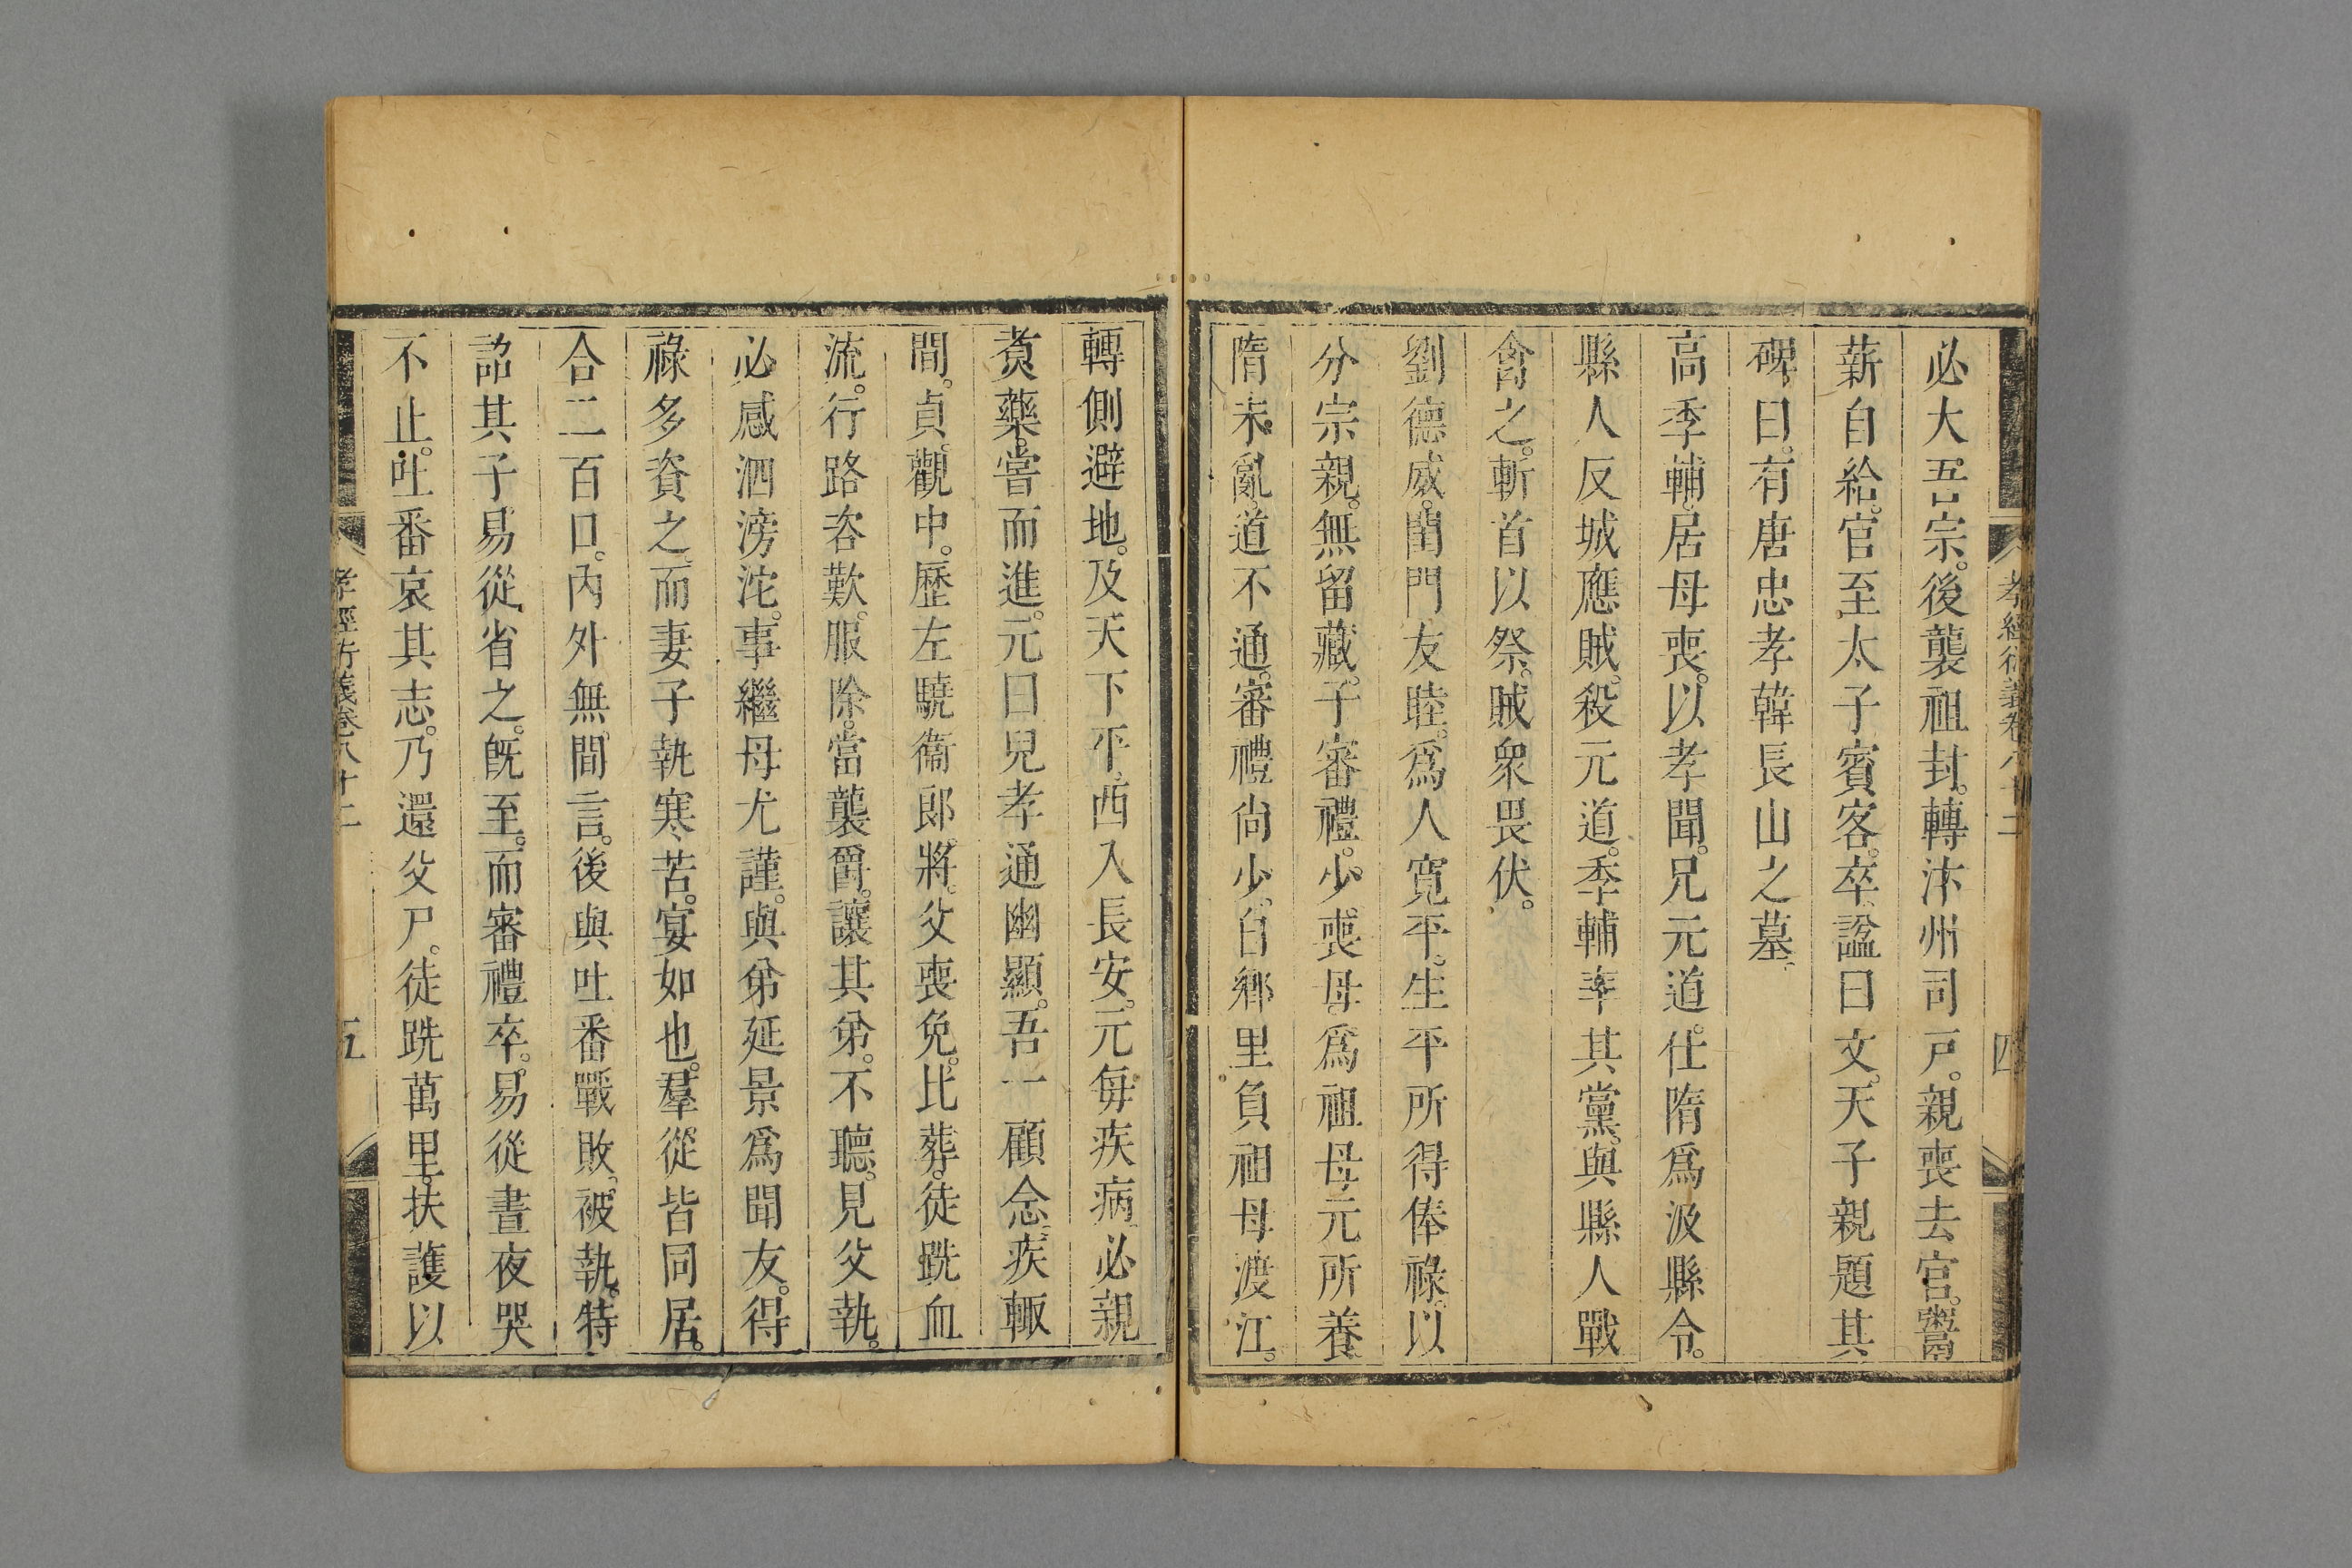 必大吾宗。後襲祖封。轉汴州司戸。親喪去官。鬻
薪自給。官至太子賓客。卒。諡曰文。天子親題其
碑。曰。有唐忠孝韓長山之墓。
高季輔。居母喪。以孝聞。兄元道。仕隋爲汲縣令。
縣人反城應賊。殺元道。季輔率其黨。與縣人戰
禽之。斬首以祭。賊衆畏伏。
劉德威。閨門友睦。爲人寬平。生平所得俸祿。以
分宗親。無留藏。子審禮。少喪母。爲祖母元所養。
隋末亂。道不通。審禮尚少。自鄉里負祖母渡江。
孝經衍義卷八十二 四
轉側避地。及天下平。西入長安。元每疾病。必親
煑藥。嘗而進。元曰。兒孝通幽顯。吾一顧念。疾輒
間。貞觀中。歷左驍衞郎將。父喪免。比葬。徒跣血
流。行路咨歎。服除。當襲爵。讓其弟。不聽。見父執。
必感泗滂沱。事繼母尤謹。與弟延景爲聞友。得
祿多資之。而妻子執寒苦。宴如也。羣從皆同居。
合二百口。內外無間言。後與吐番戰敗。被執。特
詔其子易從省之。旣至。而審禮卒。易從晝夜哭
不止。吐番哀其志。乃還父尸。徒跣萬里。扶護以
孝經衍義卷八十二 五